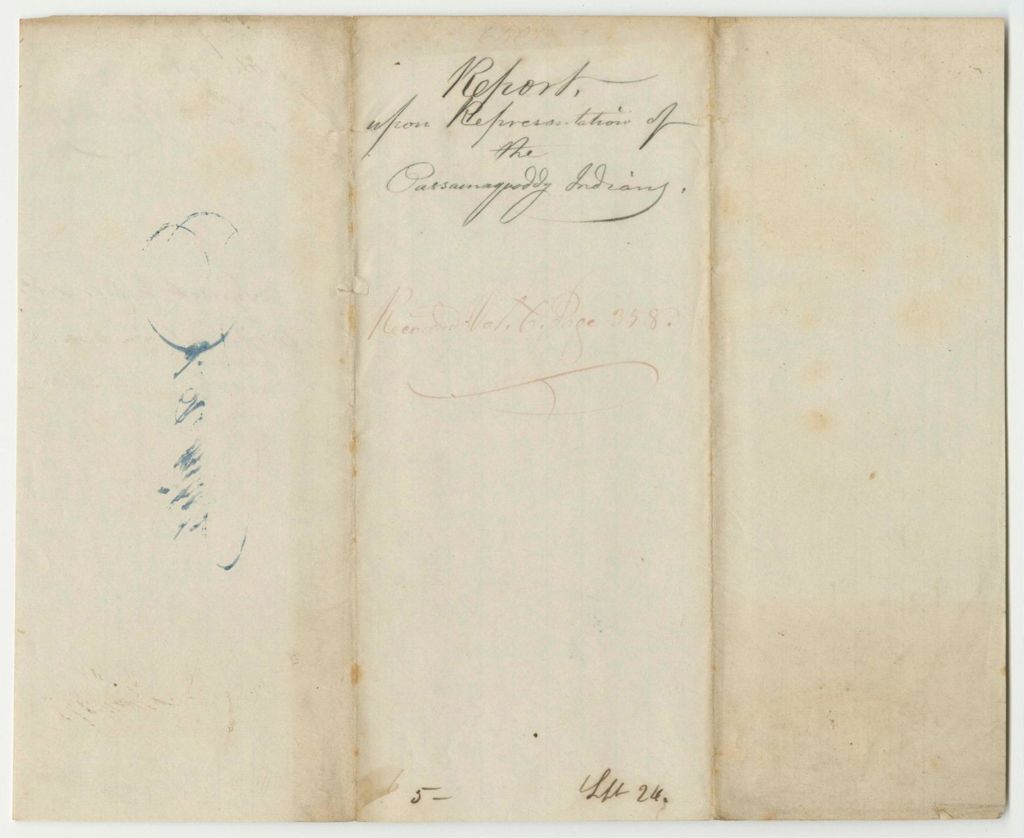 Report,
upon Representation of
the
Passamaquoddy Indians.
Recorded Vol. 6, Page 358.
5—